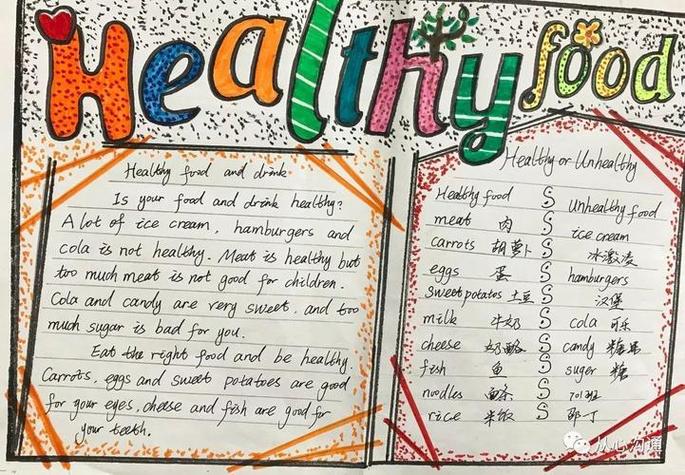 Healthy food
Healthy food and drink
Is your food and drink healthy?
A lot of ice cream, hamburgers and
cola is not healthy. Meat is healthy but
too much meat is not good for children.
Cola and candy are very sweet, and too
much sugar is bad for you.
Eat the right food and be healthy.
Carrots, eggs and sweet potatoes are good
for your eyes, cheese and fish are good for
your teeth.
Healthy or Unhealthy
Healthy food S unhealthy food
meat 肉 S ice cream
carrots 胡萝卜 S 冰激凌
eggs 蛋 S hamburgers
sweet potatoes 土豆 S 汉堡
milk 牛奶 S cola 可乐
cheese 奶酪 S candy 糖果
fish 鱼 S suger 糖
noodles 面条 S 701班
rice 米饭 S
从心沟通